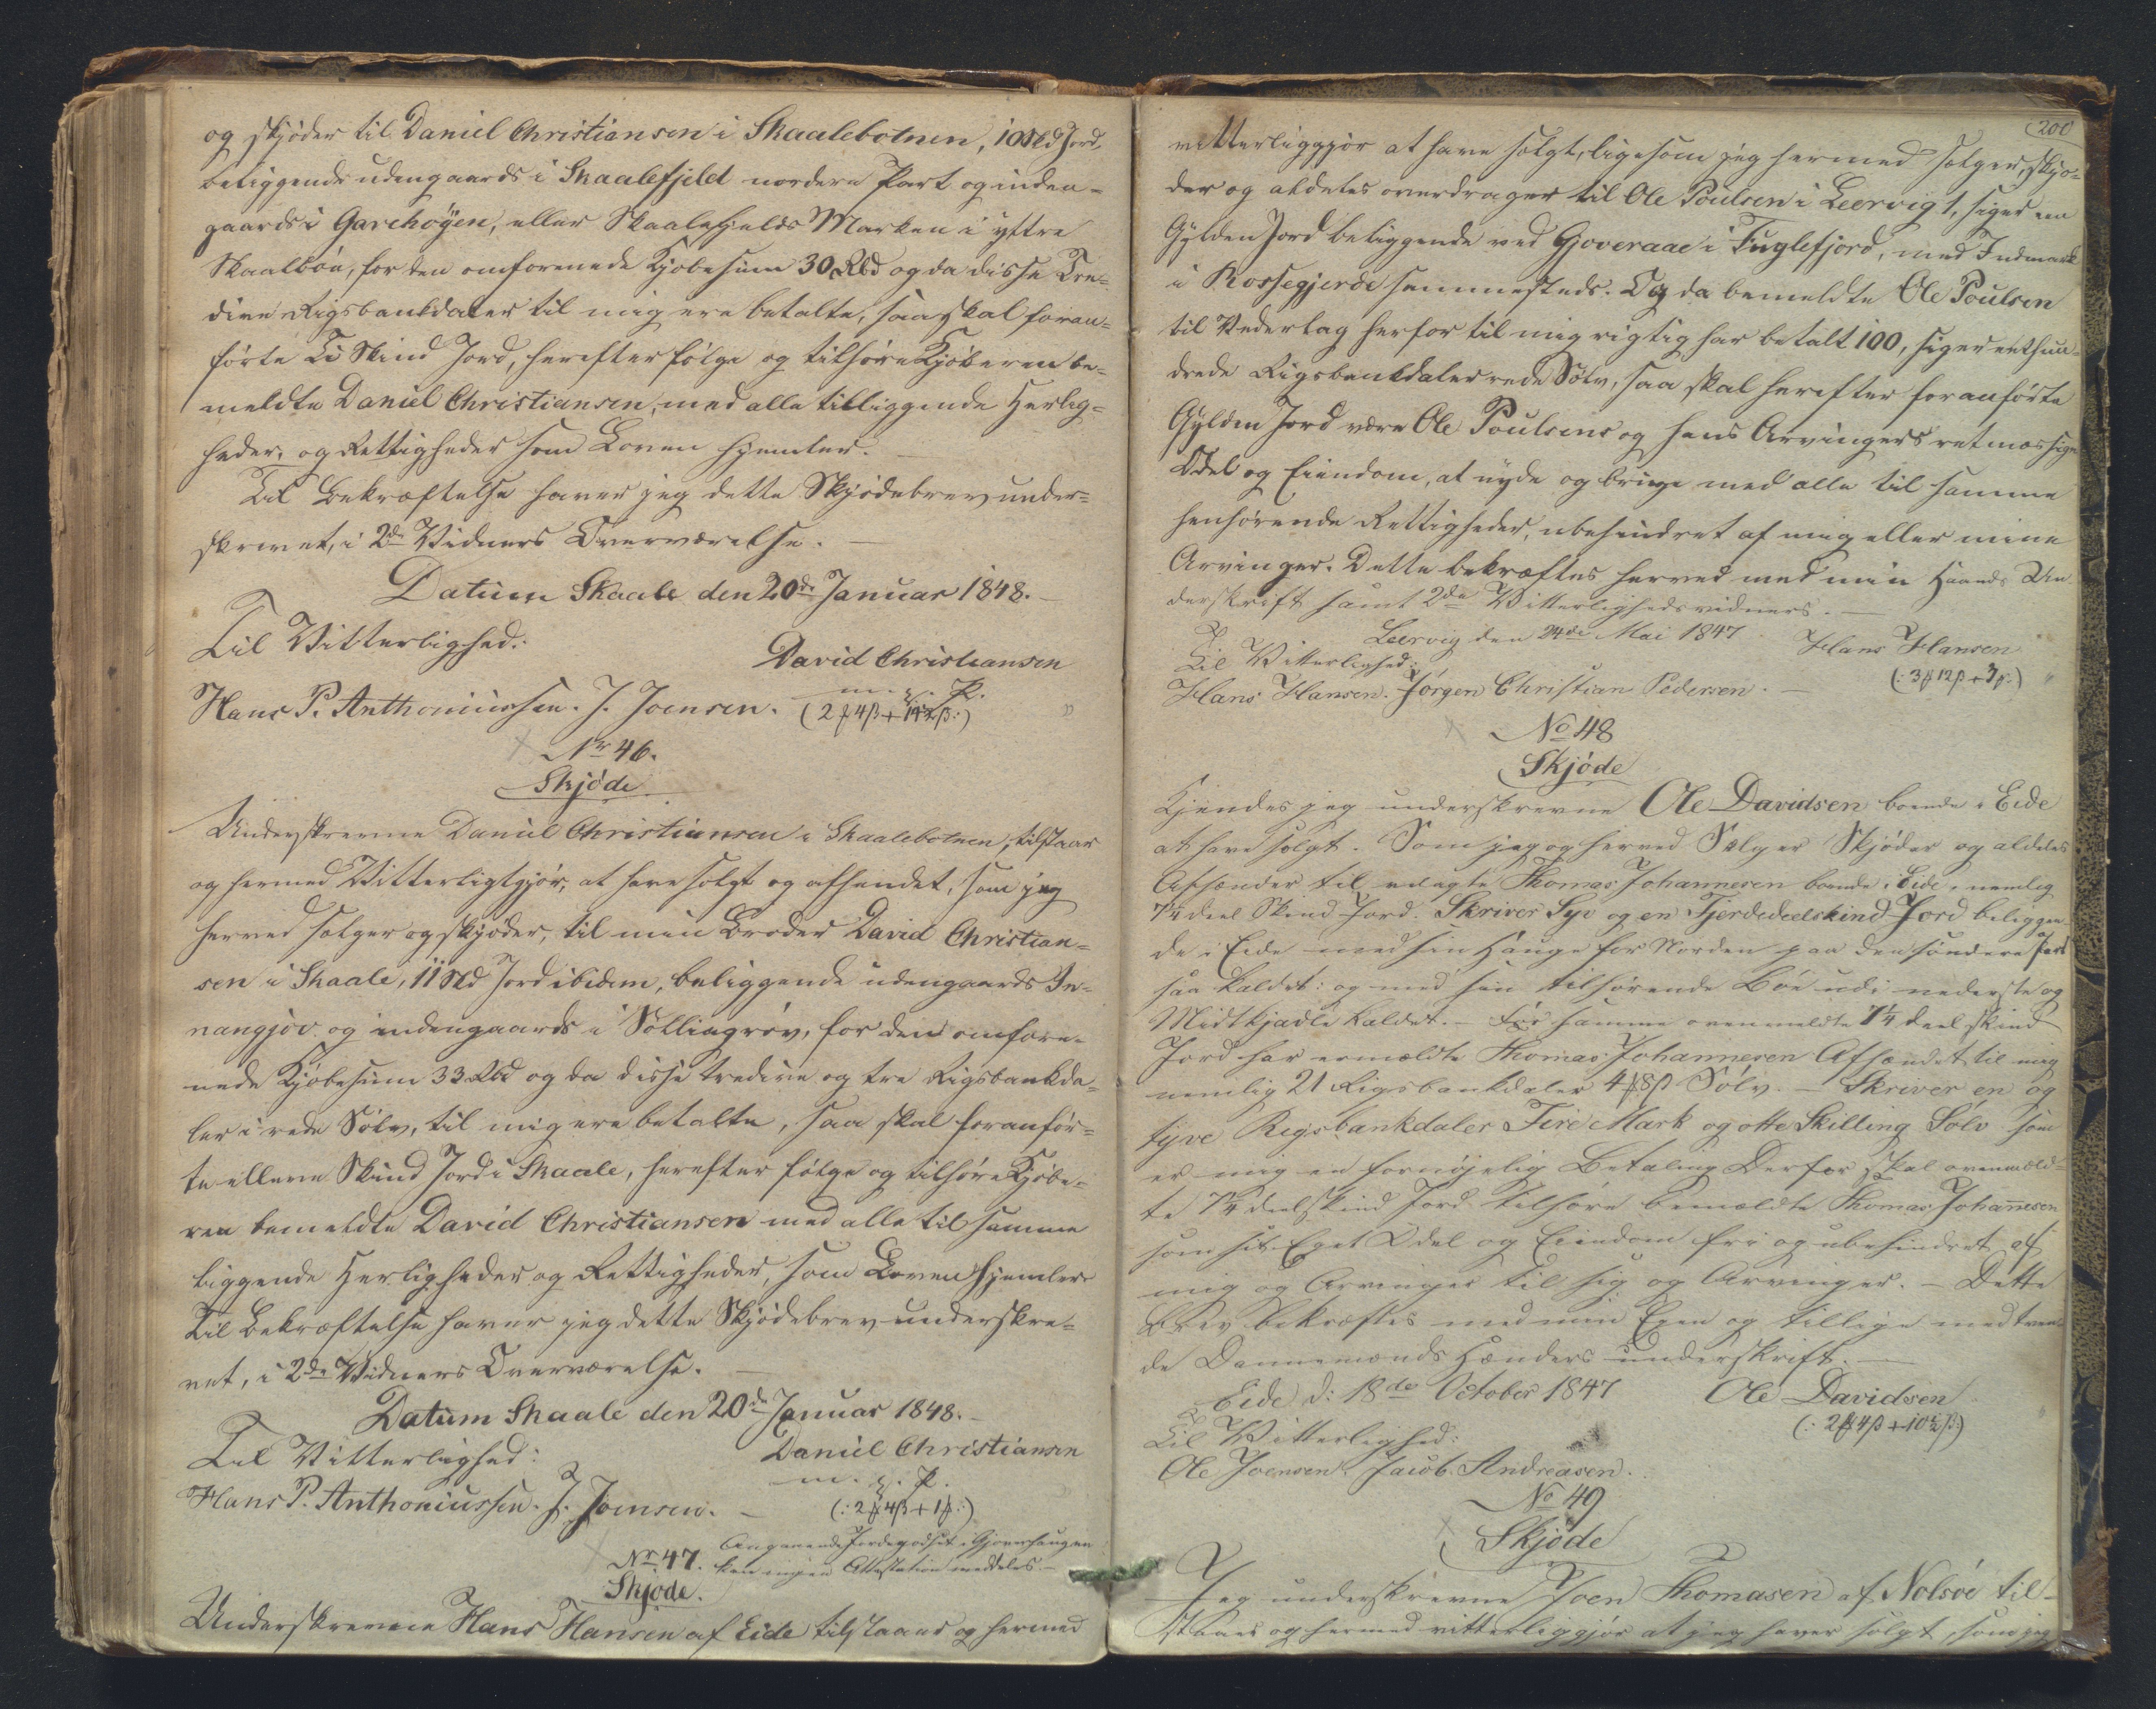 og skjøder til Daniel Christiansen i Skaalebotnen, 10 Skd Jord,
beliggende udengaards i Skaalefjeld nordere Part og inden-
gaards i Garehøyen, eller Skaalefjelds Marken i yttre
Skaalbøn, for den omforenede Kjøbesum 30 Rbd og da disse Tre-
dive Rigsbankdaler til mig ere betalte, saa skal foran-
førte Ti Skind Jord, herefter følge og tilhøre Kjøberen be-
meldte Daniel Christiansen, med alle tilliggende Herlig-
heder, og Rettigheder som Loven hjemler.
Til Bekræftelse haver jeg dette Skjødebrev under-
skrevet, i 2de Vidners Overværelse.
Datum Skaale den 20de Januar 1848.
Til Vitterlighed: David Christiansen
m. p.
Hans P. Anthoniussen. J. Joensen. (2 ꝳ 4 β +
No 46.
Skjøde
Underskrevne Daniel Christiansen i Skaalebotnen, tilstaar
og hermed Vitterligtgjør, at have solgt og afhendet, som jeg
herved sælger og skjøder, til min Broder David Christian-
sen i Skaale, 11 Skd Jord ibidem, beliggende udengaards In-
nangjov og indengaards i Søllingrøv, for den omfore-
nede Kjøbesum 33 Rbd og da disse tredive og tre Rigsbankda-
ler i rede Sølv, til mig ere betalte, saa skal foranfør-
te elleve Skind Jord i Skaale, herefter følge og tilhøre Kjøbe-
ren bemeldte David Christiansen med alle til samme
liggende Herligheder og Rettigheder, som Loven hjemler
Til Bekræftelse haver jeg dette Skjødebrev underskre-
vet, i 2de Vidners Overværelse.
Datum Skaale den 20de Januar 1848.
Til Vitterlighed: Daniel Christiansen
m. p.
Hans P. Anthoniussen. J. Joensen. (: 2 ꝳ 4 β + 1 ꝳ :)
Angaaende Jordegodset i Gjoverhaugen
No 47. kan ingen Attestation meddeles
Skjøde.
Underskrevne Hans Hansen af Eide tilstaaer og hermed
200
vitterliggjør at have solgt, ligesom jeg hermed sælger, skjø-
der og aldeles overdrager til Ole Poulsen i Leervig 1, siger een
Gylden Jord beliggende ved Gjoveraae i Fuglefjord, med Indmark
i Rossegjerde sammesteds. Og da bemeldte Ole Poulsen
til Vederlag herfor til mig rigtig har betalt 100, siger eethun-
drede Rigsbankdaler rede Sølv, saa skal herefter foranførte
Gylden Jord være Ole Poulsens og hans Arvingers retmæssige
Odel og Eiendom, at nyde og bruge med alle til samme
henhørende Rettigheder, ubehindret af mig eller mine
Arvinger. Dette bekræftes herved med min Haands Un-
derskrift samt 2de Vitterlighedsvidners.
Leervig den 24de Mai 1847. Hans Hansen
Til Vitterlighed: (: 3 ꝳ 12 β + 3 ꝳ :)
Hans Hansen. Jørgen Christian Pedersen.
No 48
Skjøde
Kjendes jeg underskrevne Ole Davidsen boende i Eide
at have solgt. Som jeg og herved Sælger Skjøder og aldeles
Afhænder til velagte Thomas Johannesen boende i Eide, nemlig
7¼ deel Skind Jord. Skriver Syv og en Fjerdedeelskind Jord beliggen-
de i Eide med sin Hauge for Norden paa den søndere Part
saa kaldet: og med sin tilhørende Bøe udi nederste og
Midtkjadle kaldet. – For samme ovenmeldte 7¼ deel skind
Jord har ermældte Thomas Johannesen Afhændet til mig
nemlig 21 Rigsbankdaler 4 ꝳ 8 β Sølv. – Skriver en og
tyve Rigsbankdaler Fire Mark og otte Skilling Sølv som
er mig en fornøjelig Betaling Derfor skal ovenmeld-
te 7¼ deelskind Jord tilhøre bemældte Thomas Johanesen
som sit Eget Odel og Eiendom fri og ubehindret af
mig og Arvinger til sig og Arvinger. – Dette
Brev bekræftes med min Egen og tillige med tven-
de Dannemænds Hænders underskrift. –
Eide d: 18de October 1847 Ole Davidsen
Til Vitterlighed: (: 2 ꝳ 4 β + 10½ β :)
Ole Joensen. Jacob Andreasen.
No 49
Skjøde
Jeg underskrevne Joen Thomasen af Nolsøe til-
staaer og hermed vitterliggjør at jeg haver solgt, som jeg